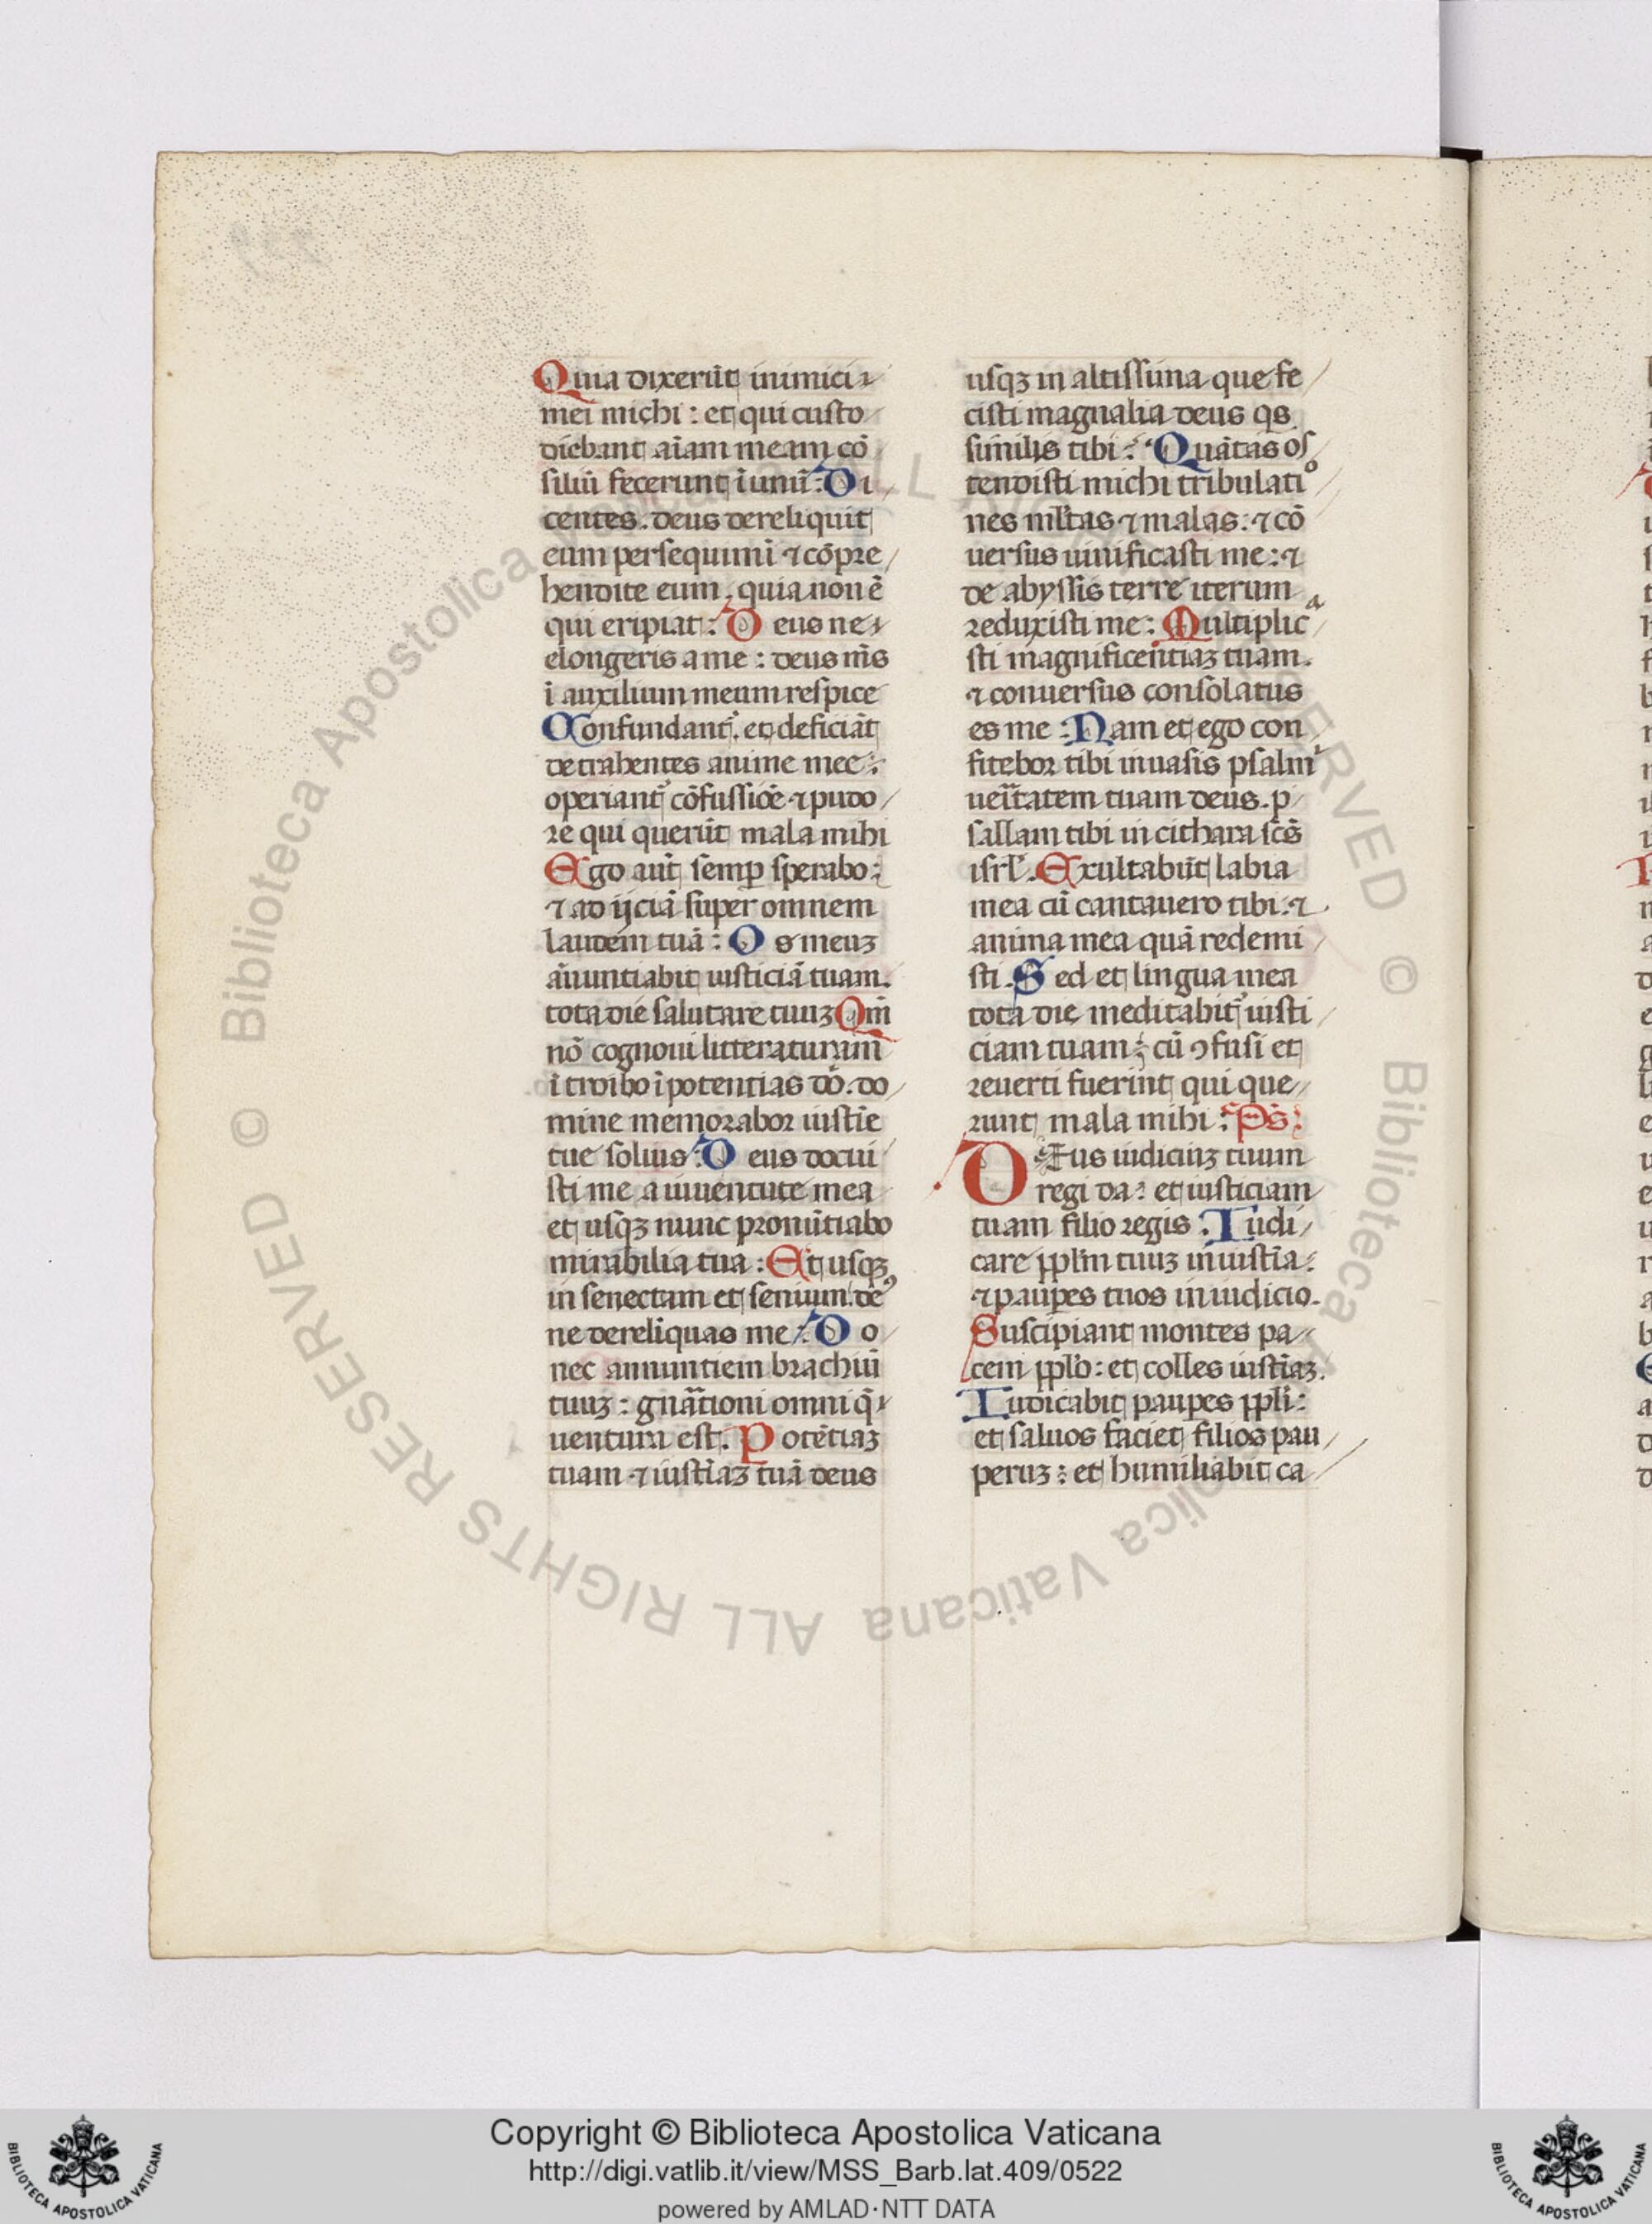 Quia dixerūt inimici
mei michi : et qui custo
diebant aīam meam cō
siliū fecerunt ī unū : Di
centes . deus dereliquit
eum persequimī ⁊ cōpre
hendite eum . quia non ē
qui eripiat : Deus ne
elongeris a me : deus m̄s
ī auxilium meum respice
Confundant᷑ . et deficiāt
detrahentes anime mee :
operiant᷑ cōfussiōe ⁊ pudo
re qui querūt mala mihi
Ego aut̄ semꝑ sperabo :
⁊ adijciā super omnem
laudem tuā : Os meuꝫ
ānuntiabit iusticiā tuam .
tota die salutare tuuꝫ Qm̄
nō cognoui litteraturam
ītroibo ī potentias dō . do
mine memorabor iustīe
tue solius : Deus docui
sti me a iuuentute mea
et usqꝫ nunc pronūtiabo
mirabilia tua : Et usqꝫ
in senectam et senium . de᷒
ne derelīquas me : Do
nec annuntiem brachiū
tuuꝫ : gnātioni omni q̄
uentura est . Potētiaꝫ
tuam ⁊ iustīaꝫ tuā deus
usqꝫ in altissima que fe
cisti magnalia deus qs
similis tibi : Quātas os
tendisti michi tribulatiᵒ
nes ml̄tas ⁊ malas : ⁊ cō
uersus uiuificasti me : ⁊
de abyssis terre iterum
reduxisti me : Multiplicᵃ
sti magnificentiaꝫ tuam .
⁊ conuersus consolatus
es me : Nam et ego con
fitebor tibi in uasis psalmⁱ
uel̄tatem tuam deus . p
sallam tibi in cithara sc̄s
isrl̄ . Exultabūt labia
mea cū cantauero tibi : ⁊
anima mea quā redemi
sti . Sed et lingua mea
tota die meditabit᷑ iusti
ciam tuam : cū ꝯfusi et
reuerti fuerint qui que
runt mala mihi : Ps̄ :
DEus iudiciuꝫ tuum
regi da : et iusticiam
tuam filio regis : Iudi
care pplm̄ tuuꝫ in iustīa :
⁊ pauꝑes tuos in iudicio .
Suscipiant montes pa
cem pplō : et colles iustīaꝫ .
Iudicabit pauꝑes pplī :
et saluos faciet filios pau
peruꝫ : et humiliabit ca
Copyright © Biblioteca Apostolica Vaticana
http://digi.vatlib.it/view/MSS_Barb.lat.409/0522
powered by AMLAD·NTT DATA
BIBLIOTECA APOSTOLICA VATICANA
BIBLIOTECA APOSTOLICA VATICANA
© Biblioteca Apostolica Vaticana ALL RIGHTS RESERVED © Biblioteca Apostolica Vaticana ALL RIGHTS RESERVED